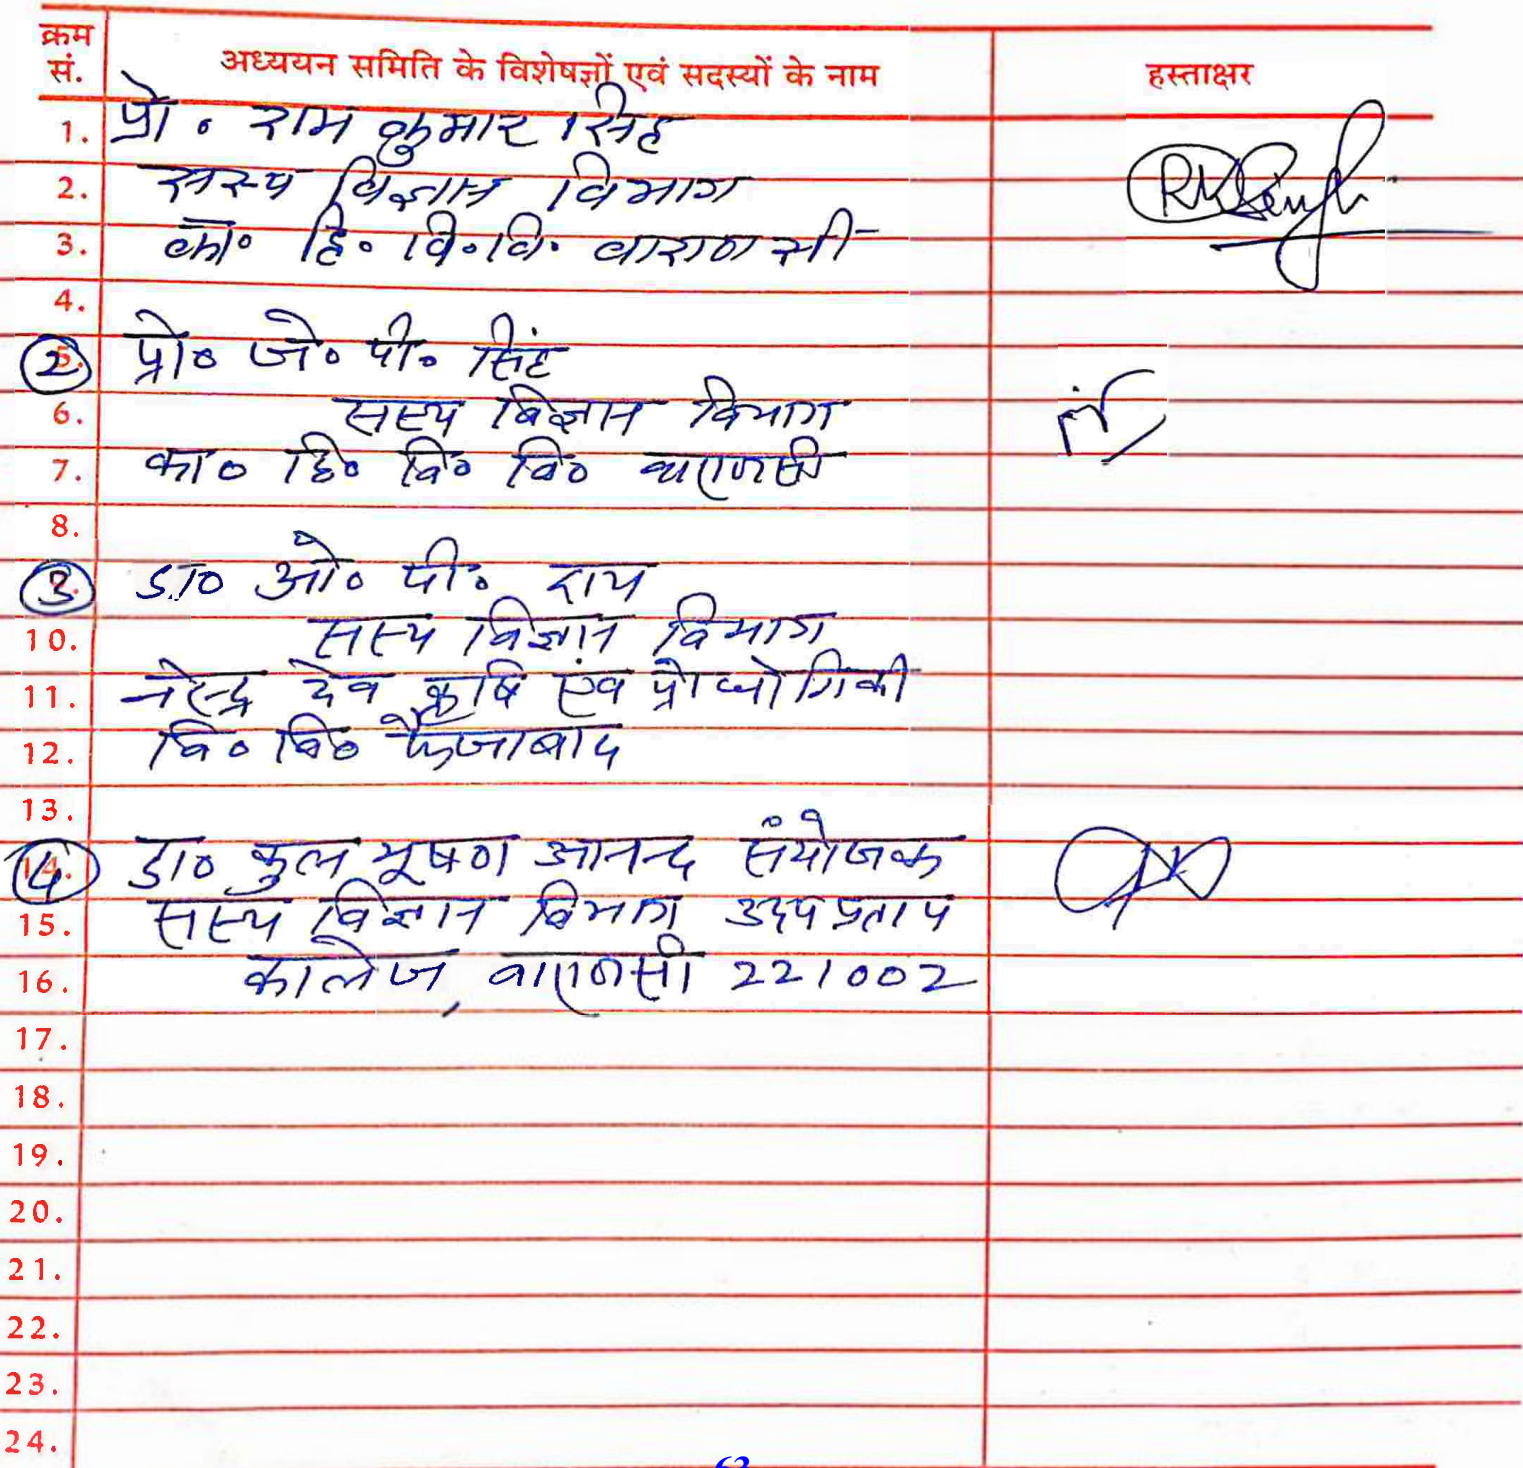 क्रम सं. अध्ययन समिति के विशेषज्ञों एवं सदस्यों के नाम हस्ताक्षर
1. प्रो. राम कुमार सिंह
2. सस्य विज्ञान विभाग RKSingh
3. का॰ हि॰ वि॰ वि॰ वाराणसी
4.
2 5. प्रो॰ जे॰ पी॰ सिंह
6. सस्य विज्ञान विभाग
7. का॰ हि॰ वि॰ वि॰ वाराणसी
8.
3 डा॰ ओ॰ पी॰ राय
10. सस्य विज्ञान विभाग
11. नरेन्द्र देव कृषि एंव प्रोद्योगिकी
12. वि॰ वि॰ फैजाबाद
13.
4 14. डा॰ कुल भूषण आनन्द संयोजक
15. सस्य विज्ञान विभाग उदय प्रताप
16. कालेज, वाराणसी 221002
17.
18.
19.
20.
21.
22.
23.
24.